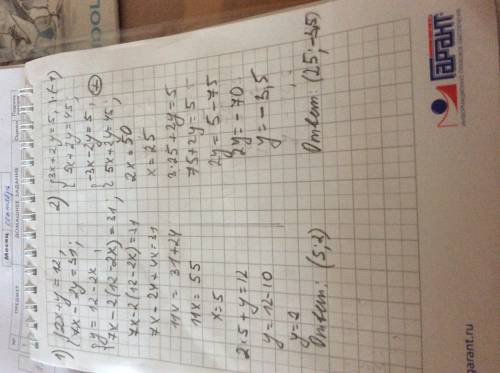 1) { 2x + y = 12,
{ 7x - 2y = 31;
{ y = 12 - 2x
{ 7x - 2(12 - 2x) = 31,
7x - 2(12 - 2x) = 31
7x - 24 + 4x = 31
11x = 31 + 24
11x = 55
x = 5
2 · 5 + y = 12
y = 12 - 10
y = 2
Ответ: (5; 2)
2) { 3x + 2y = 5, | · (-1)
{ 5x + 2y = 45;
{ -3x - 2y = 5, +
{ 5x + 2y = 45;
2x = 50
x = 25
3 · 25 + 2y = 5
75 + 2y = 5
2y = 5 - 75
2y = -70
y = -3,5
Ответ: (25; -3,5)
ГАРАНТ
ИНФОРМАЦИОННО-
garant.ru
Месяц сентябрь
ПРЕДМЕТ
ДОМАШНЕЕ ЗАДАНИЕ